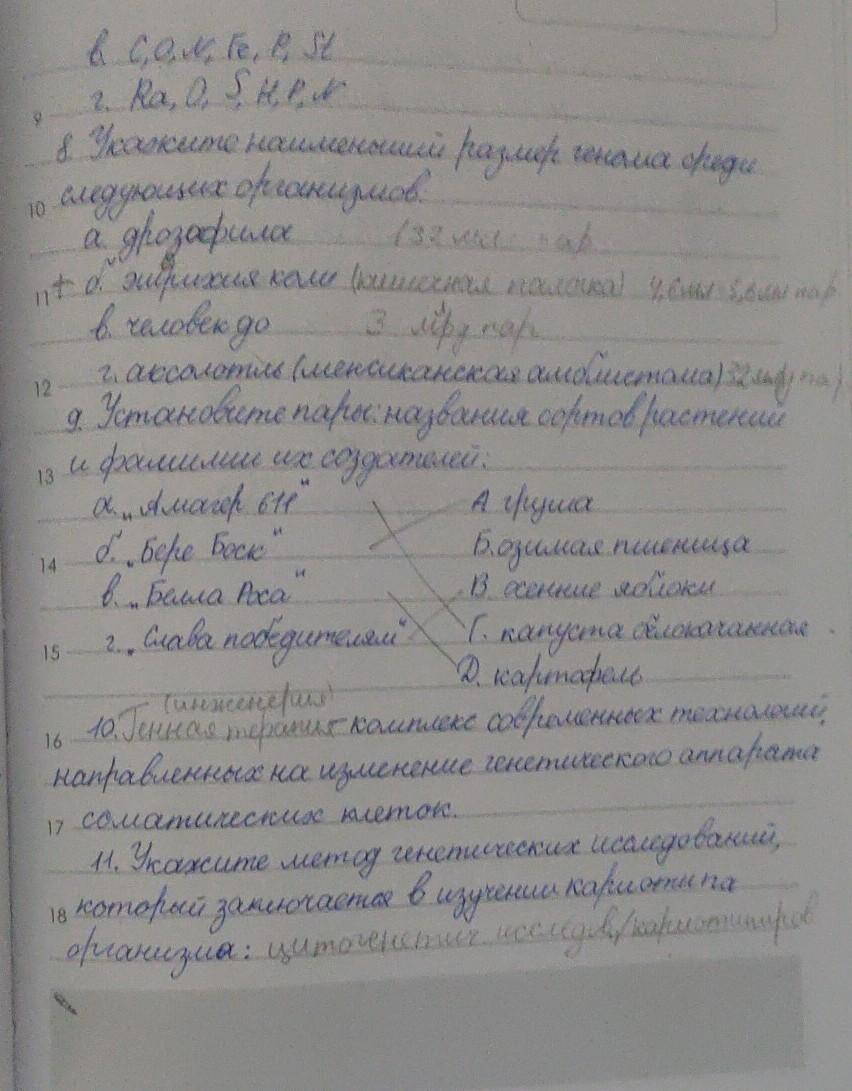 в. C, O, N, Fe, P, St
г. Ra, O, S, H, P, N
9
8. Укажите наименьший размер генома среди
10 следующих организмов.
а. дрозофила 132 мл пар
11 + б. эшрихия коли (кишечная палочка) 4,6мл 5,6млн пар
в. человек до 3 млрд пар
12 г. аксолотль (мексиканская амбистома) 32 млрд па)
9. Установите пары: названия сортов растений
13 и фамилии их создателей:
а. „Амагер 611" А груша
14 б. „Бере Боск" Б. озимая пшеница
в. „Белла Роса" В. осенние яблоки
15 г. „Слава победителям" Г. капуста белокачанная
Д. картофель
(инженерия)
16 10. Генная терапия комплекс современных технологий,
направленных на изменение генетического аппарата
17 соматических клеток.
11. Укажите метод генетических исследований,
18 который заключается в изучении кариотипа
организма: цитогенетич исследов/кариотипиров